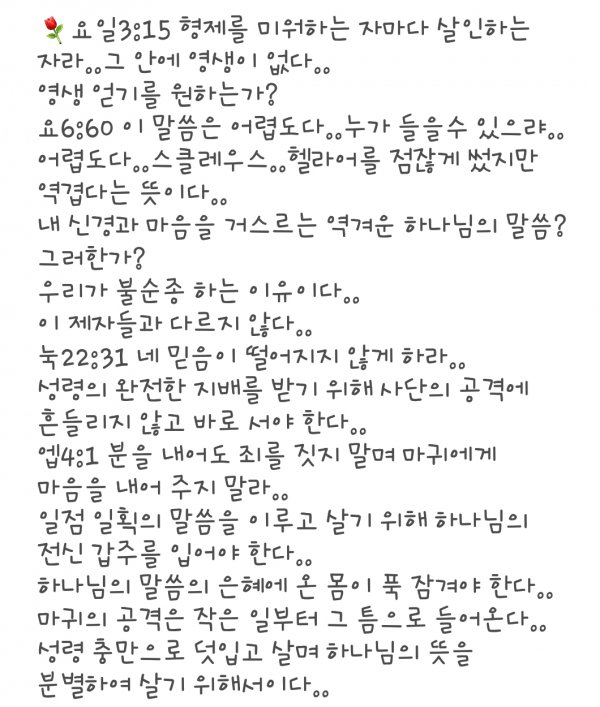 🌹 요일3:15 형제를 미워하는 자마다 살인하는
자라。。그 안에 영생이 없다。。
영생 얻기를 원하는가?
요6:60 이 말씀은 어렵도다。。누가 들을수 있으랴。。
어렵도다。。스클레우스。。헬라어를 점잖게 썼지만
역겹다는 뜻이다。。
내 신경과 마음을 거스르는 역겨운 하나님의 말씀?
그러한가?
우리가 불순종 하는 이유이다。。
이 제자들과 다르지 않다。。
눅22:31 네 믿음이 떨어지지 않게 하라。。
성령의 완전한 지배를 받기 위해 사단의 공격에
흔들리지 않고 바로 서야 한다。。
엡4:1 분을 내어도 죄를 짓지 말며 마귀에게
마음을 내어 주지 말라。。
일점 일획의 말씀을 이루고 살기 위해 하나님의
전신 갑주를 입어야 한다。。
하나님의 말씀의 은혜에 온 몸이 푹 잠겨야 한다。。
마귀의 공격은 작은 일부터 그 틈으로 들어온다。。
성령 충만으로 덧입고 살며 하나님의 뜻을
분별하여 살기 위해서이다。。